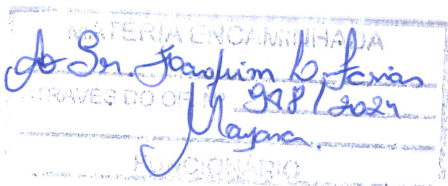 MATÉRIA ENCAMINHADA
Ao Sr. Joaquim L. Farias
ATRAVÉS DO OF. Nº 948/2024
Mayara.
FUNCIONÁRIO